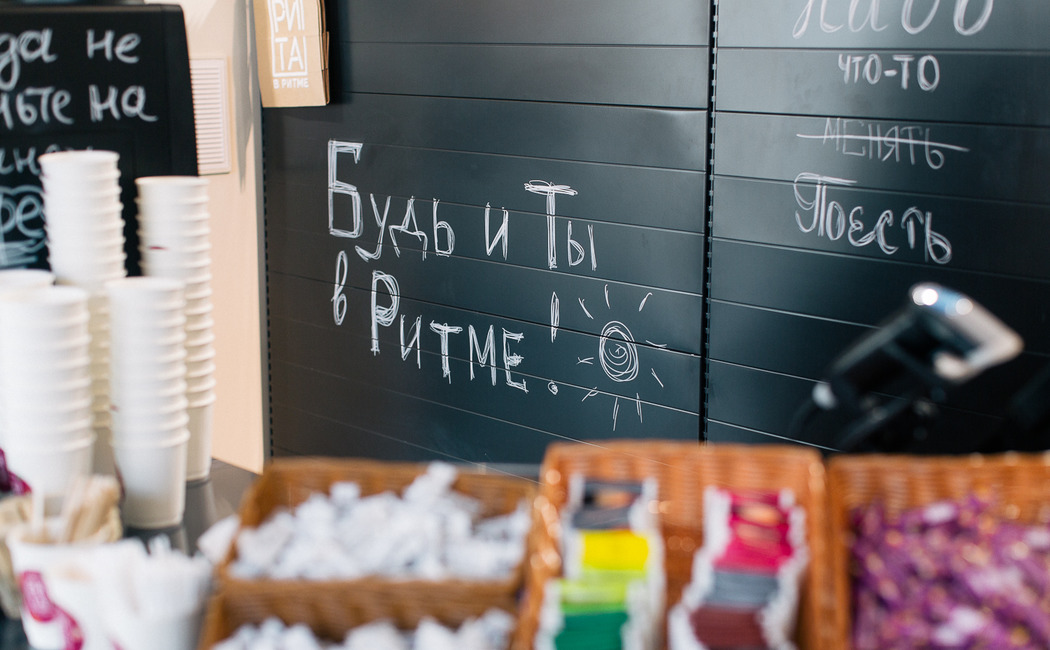 да не
ньте на
РИ
ТА
В РИТМЕ
Будь и Ты
в Ритме!
Надо
что-то
менять
Поесть